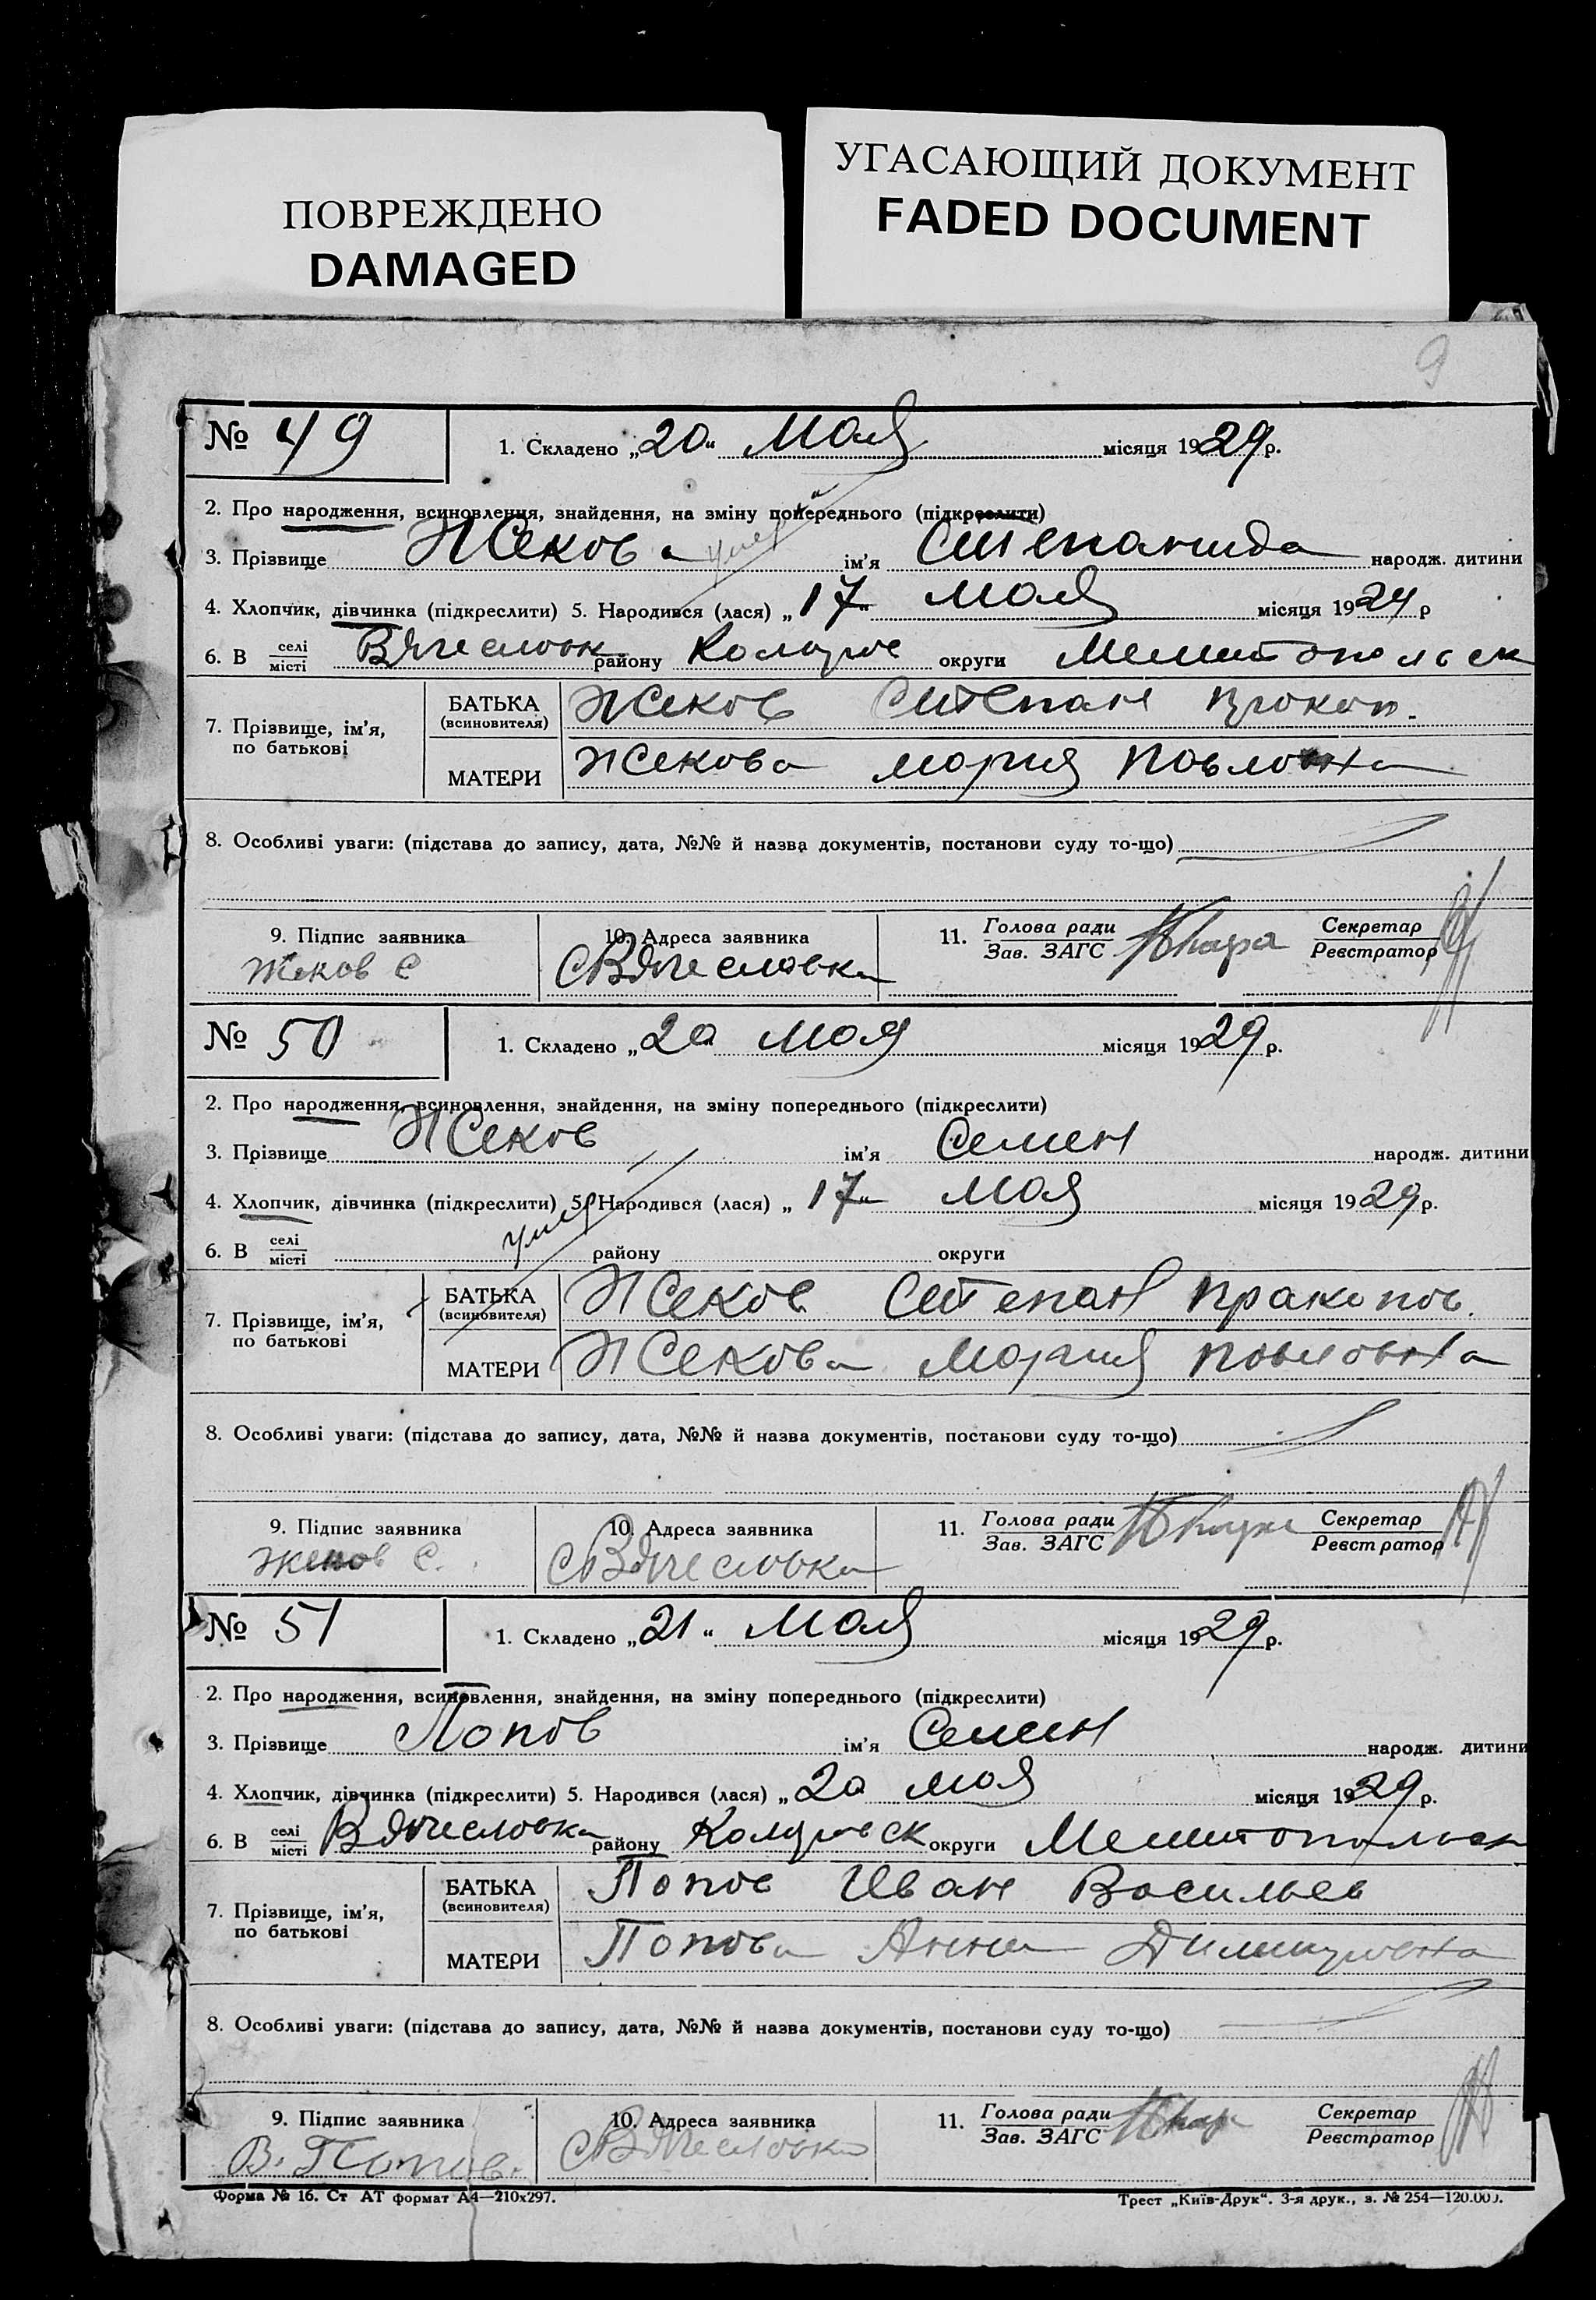 ПОВРЕЖДЕНО
DAMAGED
УГАСАЮЩИЙ ДОКУМЕНТ
FADED DOCUMENT
9
№ 49 1. Складено „20“ Мая місяця 1929 р.
2. Про народження, всиновлення, знайдення, на зміну попереднього (підкреслити)
3. Прізвище Жекова ім'я Степанида народж. дитини
4. Хлопчик, дівчинка (підкреслити) 5. Народився (лася) „17“ Мая місяця 1929 р
6. В селі місті Вячеславк району округи Мелитопольск
7. Прізвище, ім'я, по батькові БАТЬКА (всиновителя) Жеков Степан Прокоп.
МАТЕРИ Жекова Мария Павловна
8. Особливі уваги: (підстава до запису, дата, №№ й назва документів, постанови суду то-що)
9. Підпис заявника 10. Адреса заявника 11. Голова ради Зав. ЗАГС Секретар Реєстратор
Жеков С С Вячеславка
№ 50 1. Складено „20 Мая місяця 1929 р.
2. Про народження, всиновлення, знайдення, на зміну попереднього (підкреслити)
3. Прізвище Жеков ім'я Семен народж. дитини
4. Хлопчик, дівчинка (підкреслити) 5. Народився (лася) „17“ Мая місяця 1929 р.
умер
6. В селі місті району округи
7. Прізвище, ім'я, по батькові БАТЬКА (всиновителя) Жеков Степан Пракопов.
МАТЕРИ Жекова Мария Павловна
8. Особливі уваги: (підстава до запису, дата, №№ й назва документів, постанови суду то-що)
9. Підпис заявника 10. Адреса заявника 11. Голова ради Зав. ЗАГС Секретар Реєстратор
Жеков С. С Вячеславка
№ 51 1. Складено „21“ Мая місяця 1929 р.
2. Про народження, всиновлення, знайдення, на зміну попереднього (підкреслити)
3. Прізвище Попов ім'я Семен народж. дитини
4. Хлопчик, дівчинка (підкреслити) 5. Народився (лася) „20 мая місяця 1929 р.
6. В селі місті Вячеславка району округи Мелитопольск
7. Прізвище, ім'я, по батькові БАТЬКА (всиновителя) Попов Иван Васильев
МАТЕРИ Попова Анна
8. Особливі уваги: (підстава до запису, дата, №№ й назва документів, постанови суду то-що)
9. Підпис заявника 10. Адреса заявника 11. Голова ради Зав. ЗАГС Секретар Реєстратор
В. Попов. С Вячеславка
Форма № 16. Ст АТ формат А4—210х297. Трест „Київ-Друк“. 3-я друк., з. № 254—120.000.